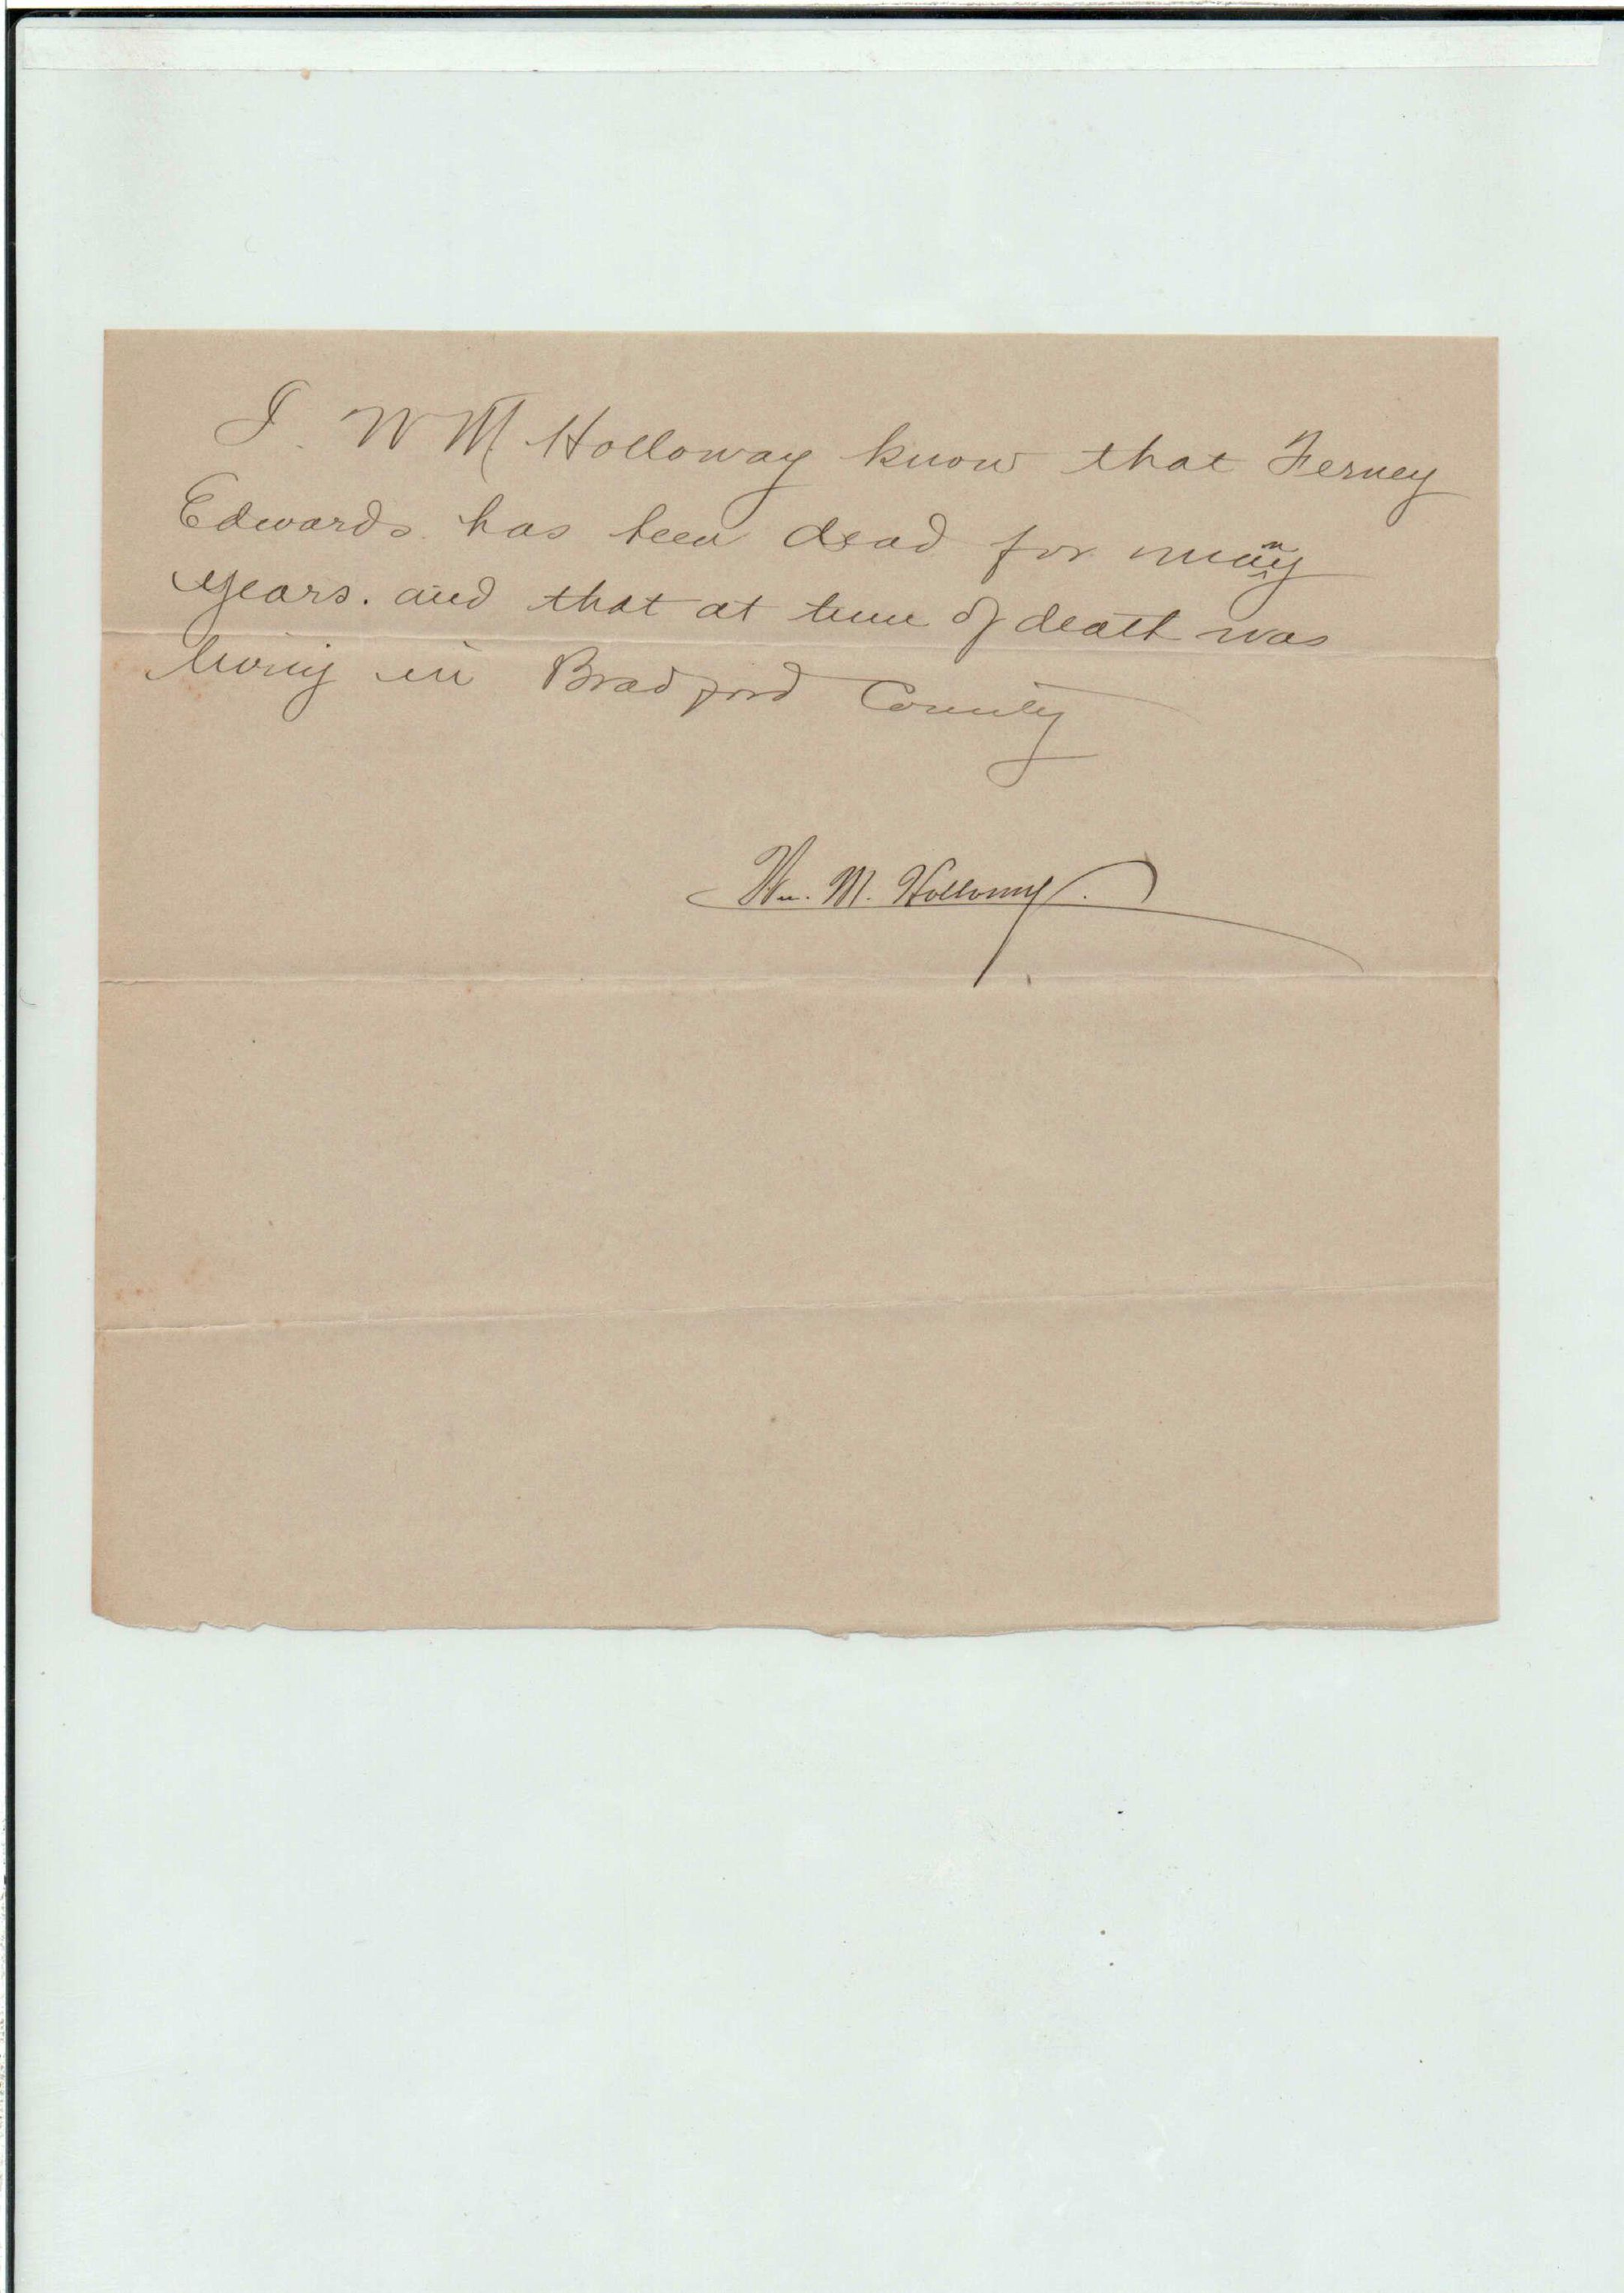 I. W M. Holloway know that Ferney
Edwards has been dead for many
years. and that at time of death was
living in Bradford County
Wm. M. Holloway.